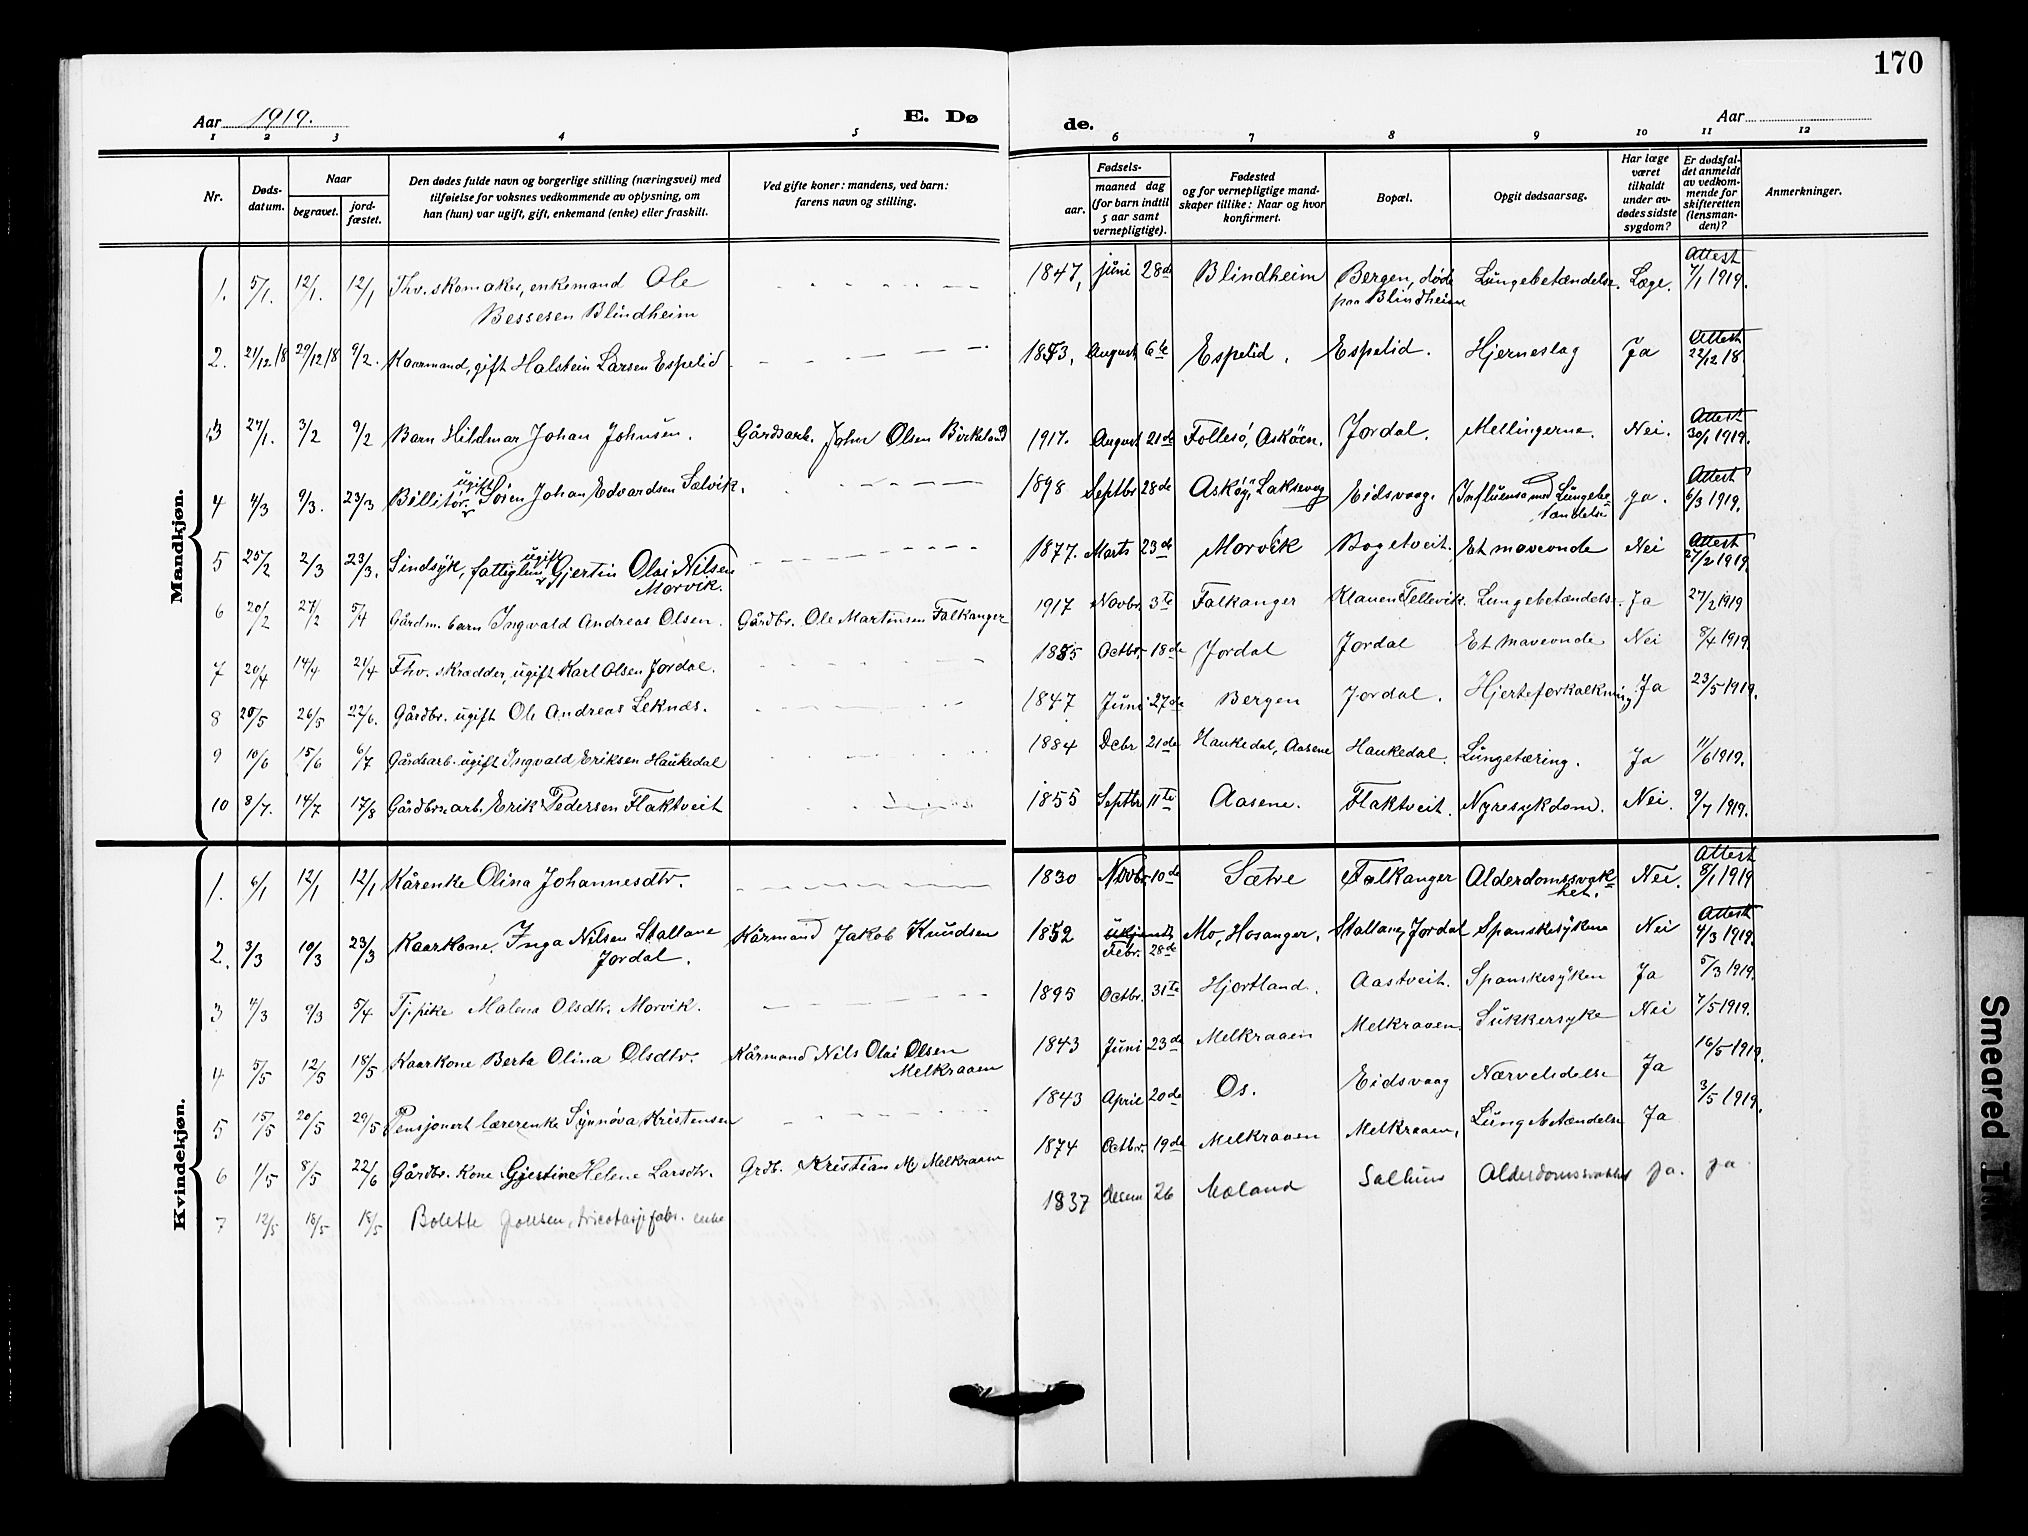 170
Aar 1919.
E. Døde.
Aar
1 2 3 4 5 6 7 8 9 10 11 12
Nr.
Døds-
datum.
Naar
begravet.
jord-
fæstet.
Den dødes fulde navn og borgerlige stilling (næringsvei) med
tilføielse for voksnes vedkommende av oplysning, om
han (hun) var ugift, gift, enkemand (enke) eller fraskilt.
Ved gifte koner: mandens, ved barn:
farens navn og stilling.
Fødsels-
aar.
maaned dag
(for barn indtil
5 aar samt
vernepligtige).
Fødested
og for vernepligtige mand-
skaper tillike: Naar og hvor
konfirmert.
Bopæl.
Opgit dødsaarsag.
Har læge
været
tilkaldt
under av-
dødes sidste
sygdom?
Er dødsfal-
det anmeldt
av vedkom-
mende for
skifteretten
(lensman-
den)?
Anmerkninger.
Mandkjøn.
1. 5/1. 12/1. 12/1 Fhv. skomaker, enkemand Ole
Bessesen Blindheim
1847, juni 28de Blindheim Bergen, døde
paa Blindheim Lungebetændelse. Læge. Attest
7/1 1919.
2. 21/12 18 29/12 18 9/2. Kaarmand, gift Halstein Larsen Espelid
1853, August 6te Espelid. Espelid. Hjerneslag Ja Attest
22/12 18.
3 27/1. 3/2 9/2 Barn Hildmar Johan Johnsen. Gårdsarb. John Olsen Birkeland
1917. August 21de Follesö, Asköen. Jordal. Mellingerne. Nei. Attest
30/1 1919.
4 4/3 9/3. 23/3 Billitör. ugift Sören Johan Edvardsen Sælvik.
1898 Septbr 28de Asköy, Laksevaag Eidsvaag. Influensa med Lungebe-
tændelse ja. Attest
6/3 1919.
5 25/2 2/3 23/3. Sindsyk, fattiglem ugift Gjertin Olai Nilsen
Morvik.
1877. Marts 23de Morvik Bogetveit. Et maveonde Nei Attest
27/2 1919.
6 20/2 27/2 5/4 Gårdm. barn Ingvald Andreas Olsen. Gårdbr. Ole Martinsen Falkanger
1917 Novbr. 3te Falkanger Klauen Tellevik. Lungebetændelse. Ja 27/2 1919
7 20/4 14/4 21/4 Fhv. skrædder, ugift Karl Olsen Jordal.
1855 Octbr. 18de Jordal Jordal Et maveonde Nei 8/4 1919.
8 20/5 26/5 22/6. Gårdbr. ugift Ole Andreas Leknes.
1847 Juni 27de Bergen Jordal. Hjerteforkalkning Ja 23/5 1919.
9 10/6 15/6 6/7 Gårdsarb. ugift Ingvald Eriksen Haukedal
1884 Dcbr 21de Haukedal, Aasene Haukedal. Lungetæring. Ja 11/6 1919.
10 8/7. 14/7 17/8 Gårdbr. arb. Erik Pedersen Flaktveit
1855 Septbr 11te Aasene. Flaktveit. Nyresykdom. Nei. 9/7 1919.
Kvindekjøn.
1. 6/1 12/1 12/1 Kårenke Olina Johannesdtr.
1830 Novbr. 10de Sætre Falkanger Alderdomssvak-
het. Nei. Attest
8/1 1919
2. 3/3 10/3 23/3 Kaarkone. Inga Nilsen Stallane
Jordal. Kårmand Jakob Knudsen
1852 ukjendt
Febr. 28de Mo, Hosanger. Stallane Jordal Spanskesyken Nei Attest
4/3 1919.
3 4/3 9/3 5/4 Tj. pike Malena Olsdtr. Morvik.
1895 Octbr. 31te Hjortland. Aastveit. Spanskesyken Ja 5/3 1919.
4 5/5 12/5 18/5 Kaarkone Berta Olina Olsdtr. Kårmand Nils Olai Olsen
Melkraaen
1843 Juni 23de Melkraaen Melkraaen. Sukkersyke Nei 7/5 1919.
5 15/5 20/5 29/5 Pensjonert lærerenke Synnöva Kristensen
1843 April 20de Os. Eidsvaag Nærvelidelse Ja 16/5 1919.
6 1/5 8/5 22/6 Gårdbr. kone Gjertine Helene Larsdtr. Grdb. Kristian M. Melkraaen
1874 Octbr. 19de Melkraaen Melkraaen. Lungebetændelse Ja 3/5 1919.
7 12/5 18/5 18/5 Bolette Joh​nsen, tricotasjefabr. enke
1837 Decem 26 Mæland Salhus Alderdomssvakhet ja. ja
Smeared